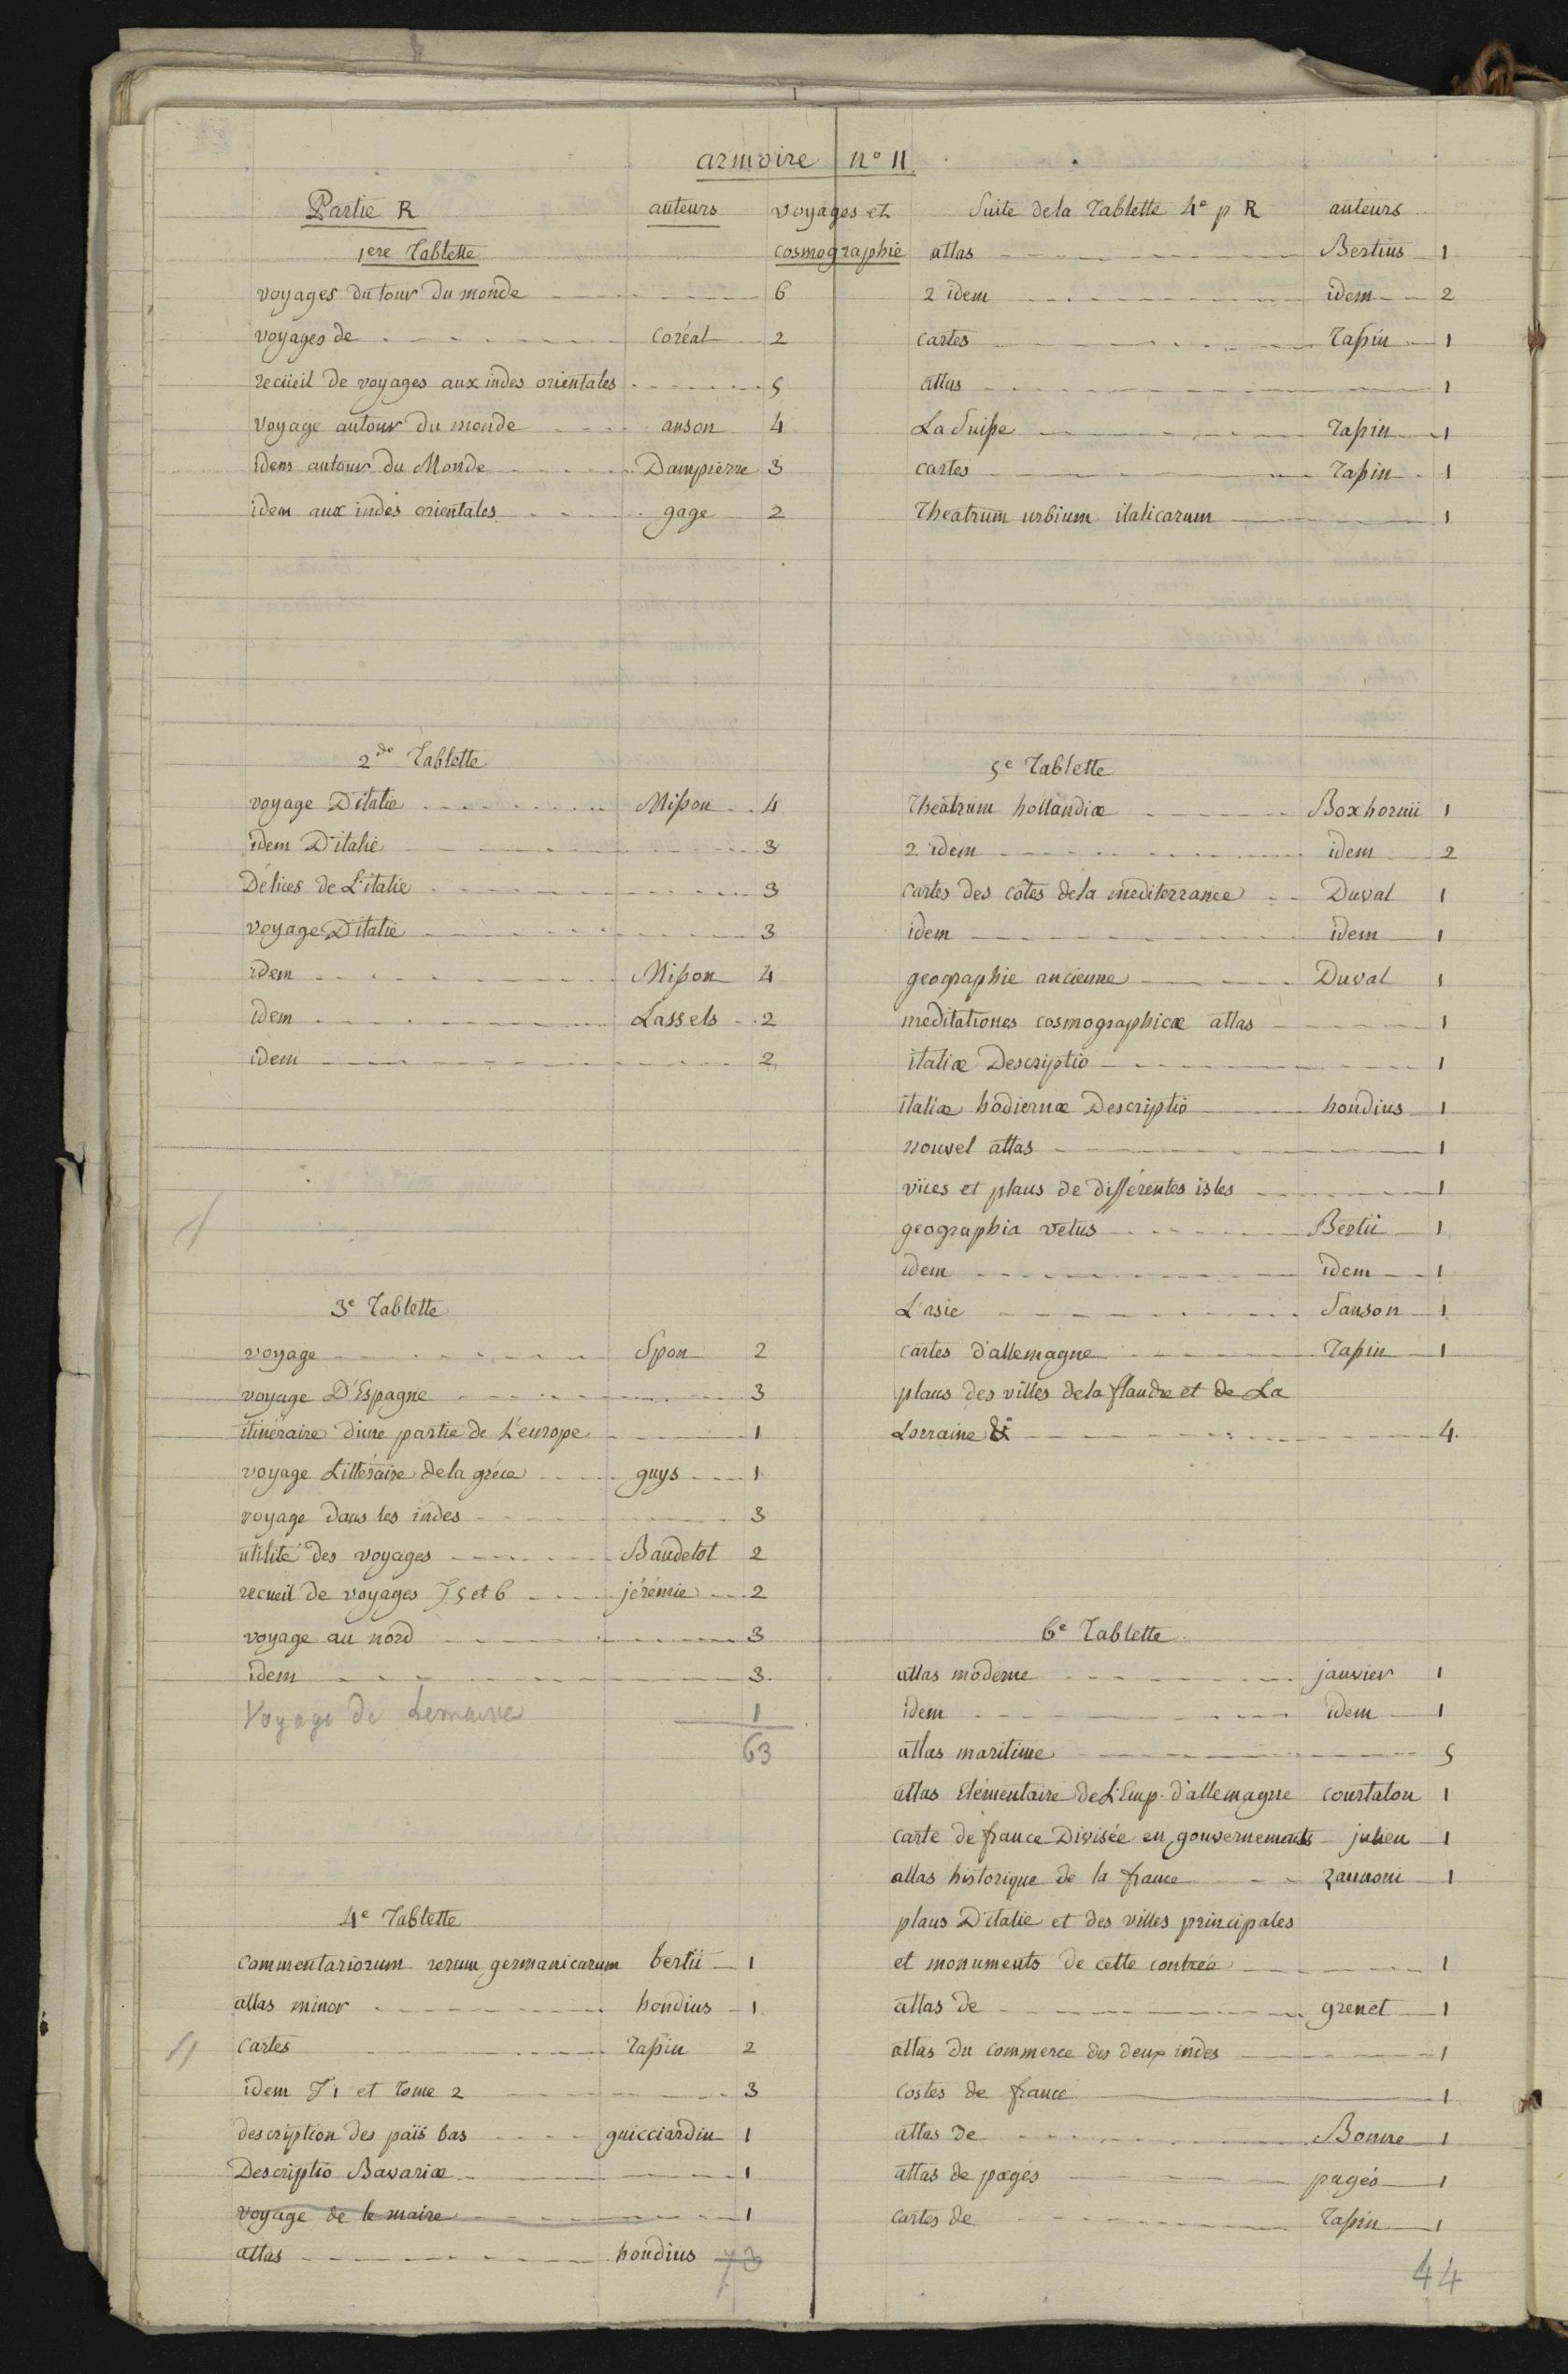 armoire n° 11.
Partie R auteurs voyages et
1ere Tablette cosmographie
voyages du tour du monde 6
voyages de coréal 2
recüeil de voyages aux indes orientales 5
voyage autour du monde anson 4
idem autour du Monde Dampierre 3
idem aux indes orientales gage 2
2de Tablette
voyage D'italie Misson 4
idem D'italie 3
Délices de L'italie 3
voyage D'italie 3
idem Misson 4
idem Lassels 2
idem 2
3e Tablette
voyage Spon 2
voyage D'Espagne 3
itinéraire d'une partie de L'europe 1
voyage Littéraire de la gréce guys 1
voyage dans les indes 3
utilité des voyages Baudelot 2
recueil de voyages T 5 et 6 jérémie 2
voyage au nord 3
idem 3
Voyage de Lemaire 1
63
4e Tablette
commentariorum rerum germanicarum bertii 1
atlas minor hondius 1
cartes Tassin 2
idem T 1 et tome 2 3
description des païs bas guicciardin 1
Descriptio Bavariæ 1
voyage de le maire 1
atlas hondius 73
Suite de la Tablette 4e p R auteurs
atlas Bertius 1
2 idem idem 2
cartes Tassin 1
atlas 1
La Suisse Tassin 1
cartes Tassin 1
Theatrum urbium italicarum 1
5e Tablette
Theatrum hollandiæ Boxhornii 1
2 idem idem 2
cartes des côtes de la mediterranee Duval 1
idem idem 1
geographie ancienne Duval 1
meditationes cosmographicæ atlas 1
italiæ Descriptio 1
italiæ hodiernæ Descriptio hondius 1
nouvel atlas 1
vües et plans de différentes isles 1
geographia vetus Bertii 1
idem idem 1
L'asie Sanson 1
cartes d'allemagne Tassin 1
plans des villes de la flandre et de La
Lorraine & 4.
6e Tablette
atlas moderne janvier 1
idem idem 1
atlas maritime 5
atlas Elémentaire de L'Emp. d'allemagne courtalon 1
carte de france Divisée en gouvernements julien 1
atlas historique de la france zannoni 1
plans D'italie et des villes principales
et monuments de cette contrée 1
atlas de grenet 1
atlas du commerce des deux indes 1
costes de france 1
atlas de Bonne 1
atlas de pages pagés 1
cartes de Tassin 1
44